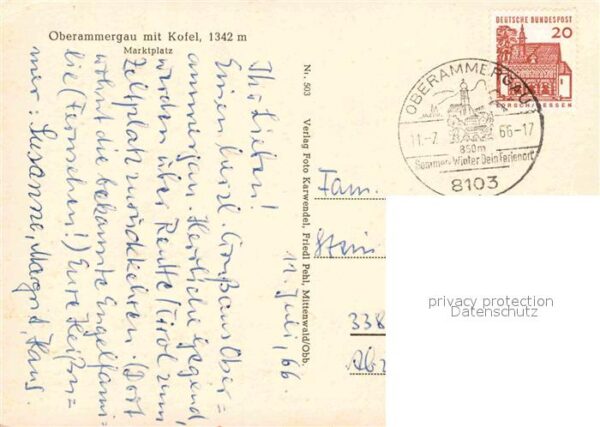 Oberammergau mit Kofel, 1342 m
Marktplatz
Ihr Lieben!
Einen herzl. Gruß aus Ober=
ammergau. Herrliche Gegend,
werden über Reutte/Tirol zum
Zeltplatz zurückkehren. (Dort
wohnt die bekannte Engelfami=
lie (Fernsehen!) Eure
: Susanne, Margrit, Hans.
11. Juli 66
Nr. 503 Verlag Foto Karwendel, Friedl Pehl, Mittenwald/Obb.
DEUTSCHE BUNDESPOST
20
LORSCH/HESSEN
OBERAMMERGAU
11.-7. 66-17
850m
Sommer-Winter Dein Ferienort
8103
Fam.
Stein
338
privacy protection
Datenschutz